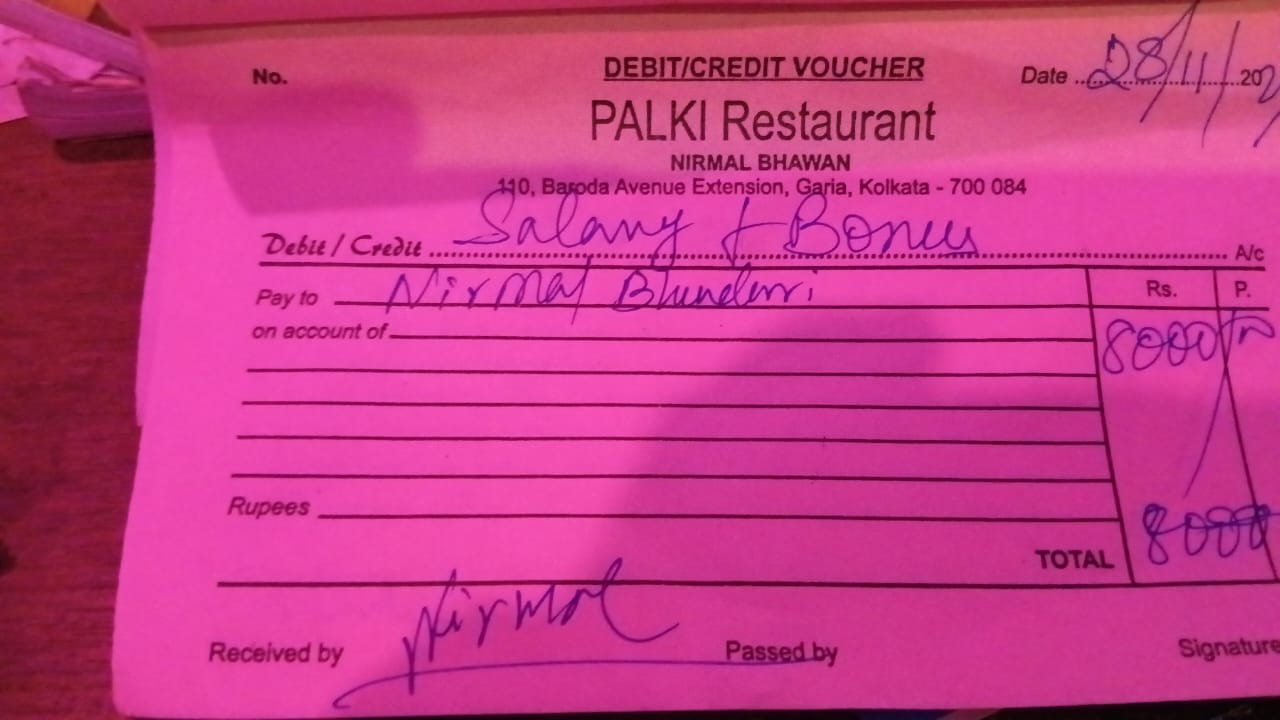 No. DEBIT/CREDIT VOUCHER Date 28/11/202
PALKI Restaurant
NIRMAL BHAWAN
110, Baroda Avenue Extension, Garia, Kolkata - 700 084
Debit / Credit Salary + Bonus A/c
Pay to Nirmal Bhunderi Rs. P.
on account of 8000/-
Rupees
TOTAL 8000
Received by Nirmal Passed by Signature